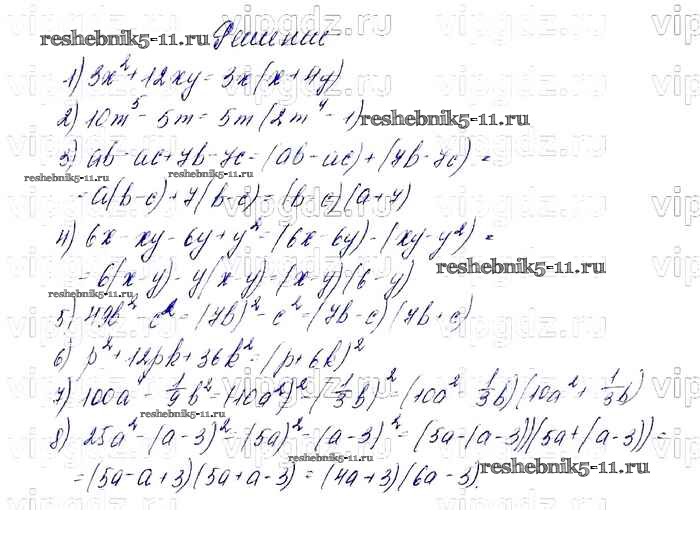 Решение
reshebnik5-11.ru
1) 3x² + 12xy = 3x(x + 4y)
2) 10m⁵ - 5m = 5m(2m⁴ - 1)
reshebnik5-11.ru
3) ab - ac + 7b - 7c = (ab - ac) + (7b - 7c) =
reshebnik5-11.ru
= a(b - c) + 7(b - c) = (b - c)(a + 7)
4) 6x - xy - 6y + y² = (6x - 6y) - (xy - y²) =
= 6(x - y) - y(x - y) = (x - y)(6 - y)
reshebnik5-11.ru
reshebnik5-11.ru
5) 49b² - c² = (7b)² - c² = (7b - c)(7b + c)
6) p² + 12pk + 36k² = (p + 6k)²
7) 100a⁴ - 1/9 b² = (10a²)² - (1/3 b)² = (10a² - 1/3 b)(10a² + 1/3 b)
reshebnik5-11.ru
8) 25a² - (a - 3)² = (5a)² - (a - 3)² = (5a - (a - 3))(5a + (a - 3)) =
reshebnik5-11.ru
= (5a - a + 3)(5a + a - 3) = (4a + 3)(6a - 3).
reshebnik5-11.ru
vipgdz.ru